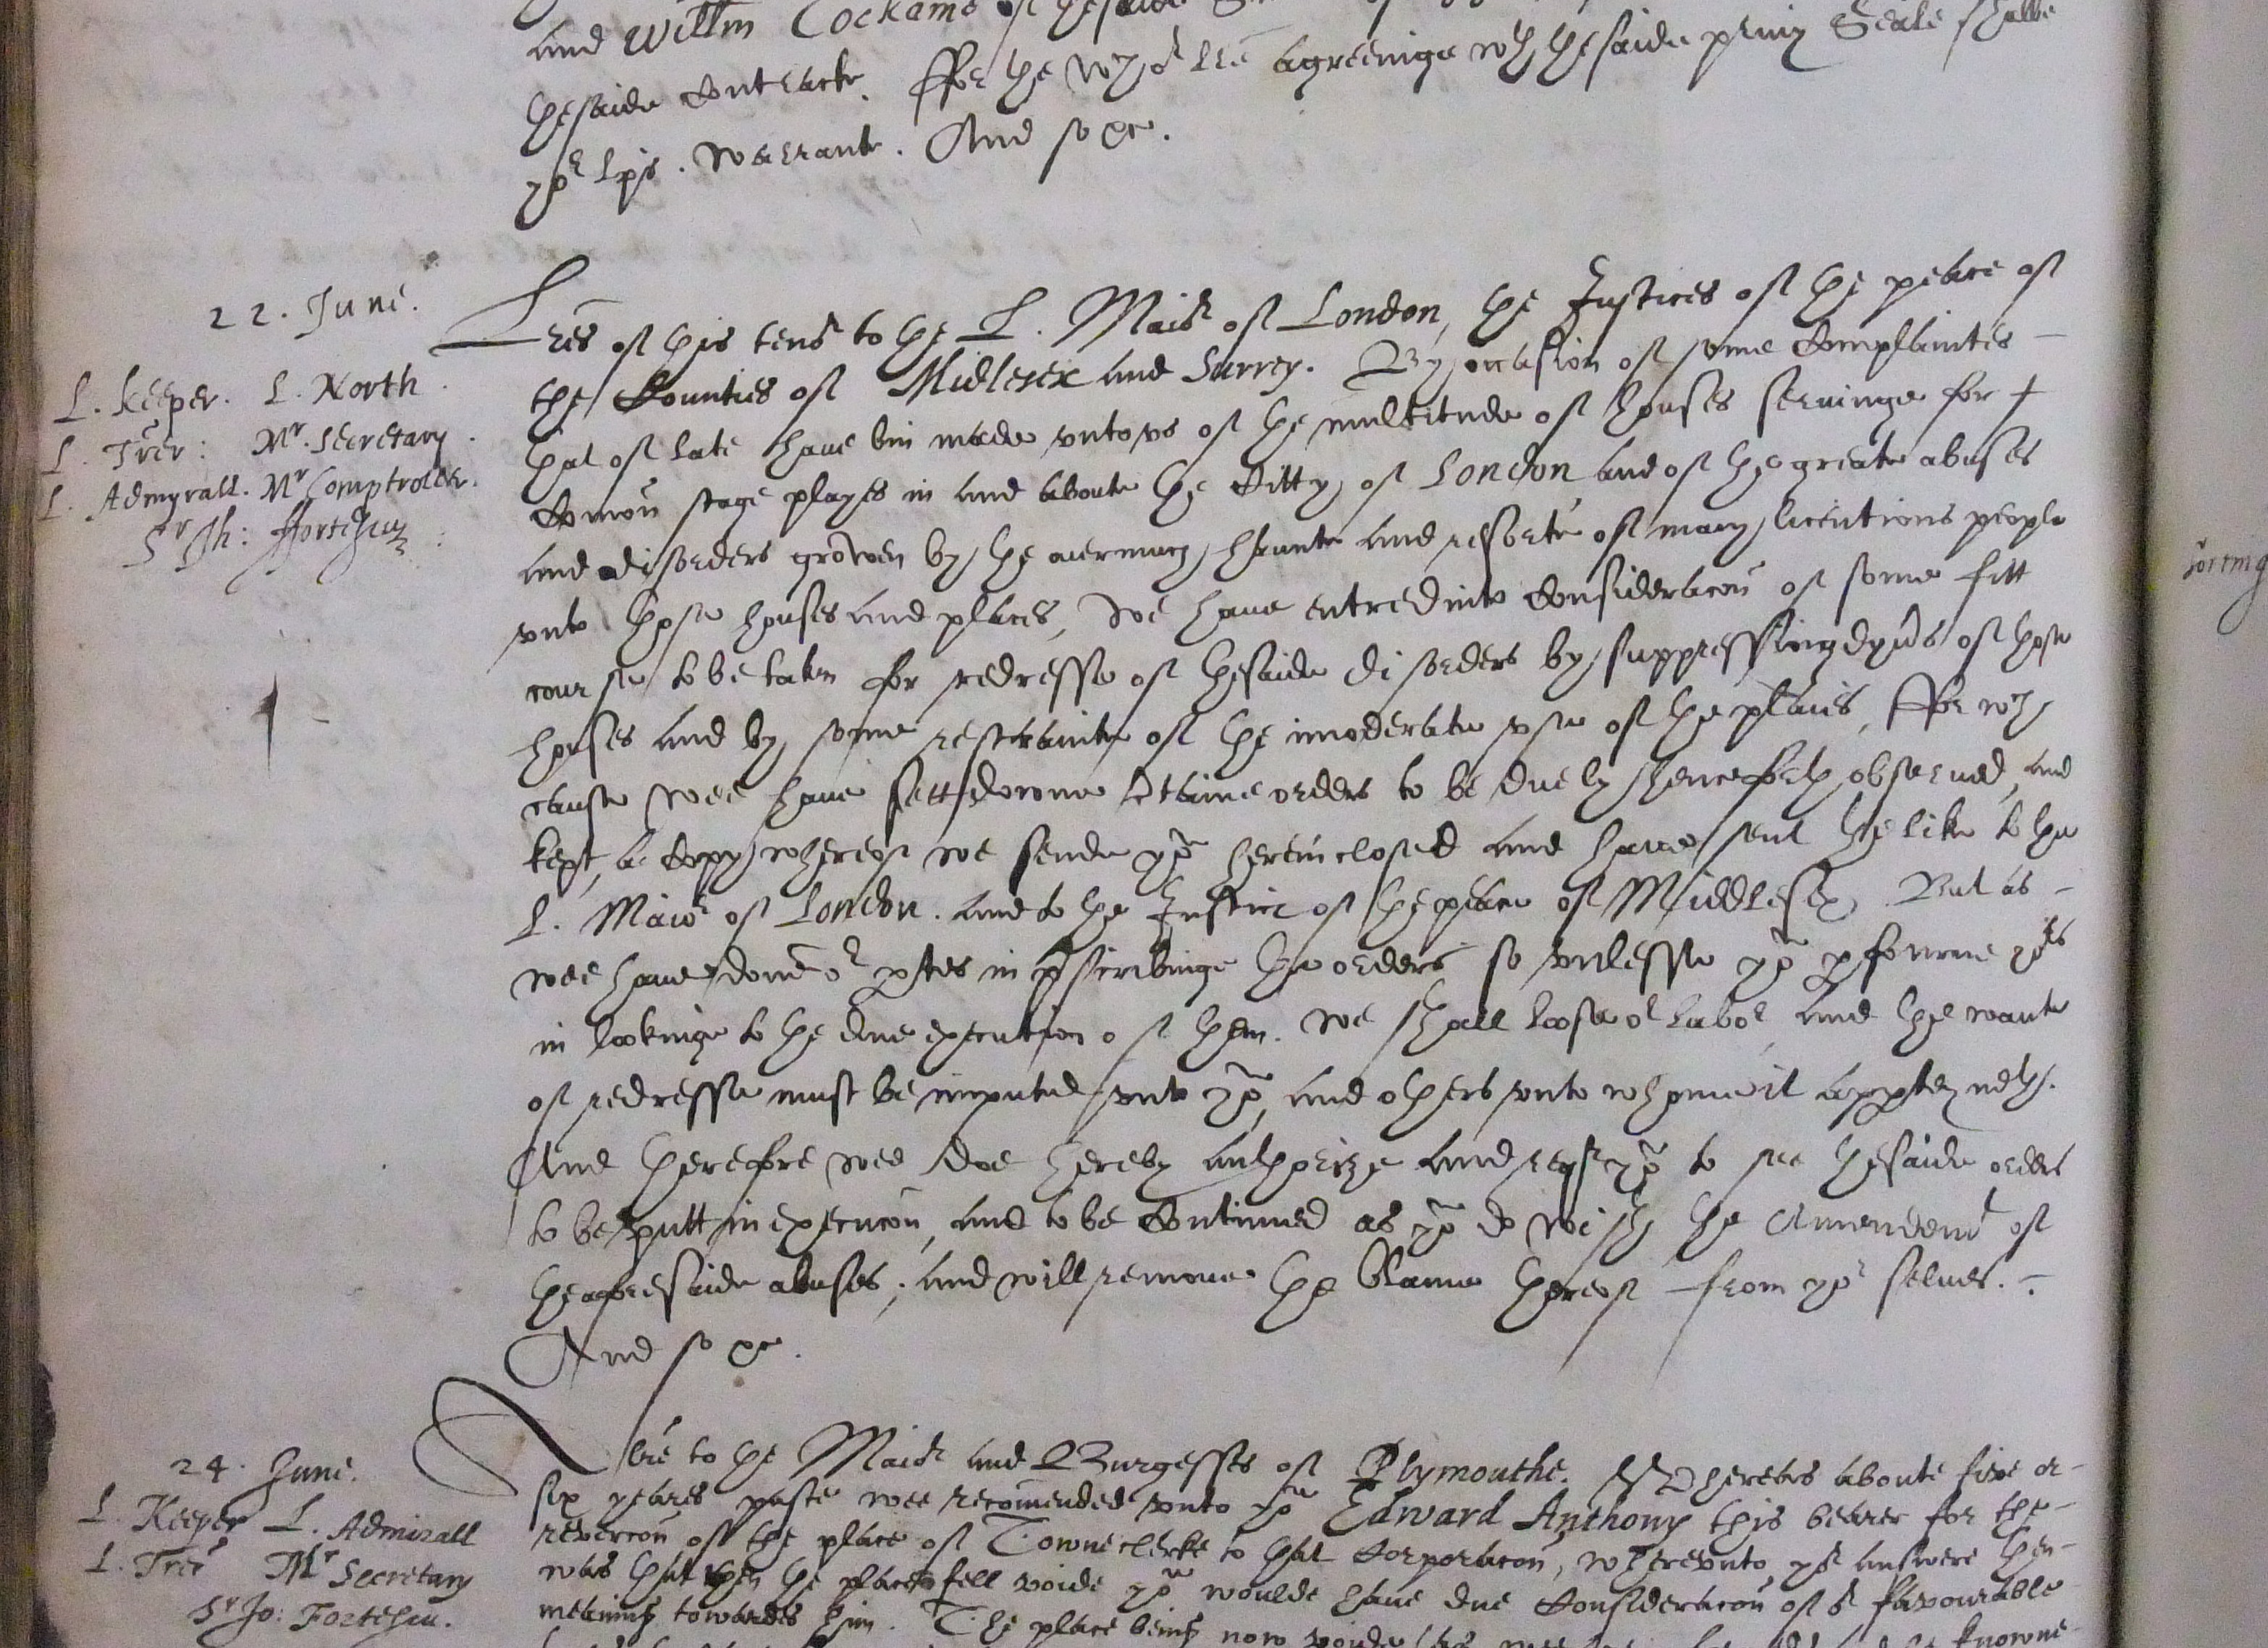 and Willm Cockame of thesaide
thesaide contracte. ffor the wch or lre agreeinge wth thesaide privy Seale shalbe
yor Lps. warrant. And so &c.
22. June.
L. Keeper. L. North.
L. Trer: Mr. Secretary.
L. Admyrall. Mr Comptroller.
Sr Jh: ffortescu
Lres of this tenor to the L. Maior of London, the Justices of the peace of
the Counties of Midlesex and Surrey. By occasion of some Complaintes
that of late have bin made unto us of the multitude of houses servinge for
Comon stage playes in and aboute the Citty of London and of the greate abuses
and disorders growen by the overmuch haunte and resorte of many licentious people
unto those houses and places, we have entred into Consideracon of some fitt
course to be taken for redresse of thesaide disorders by suppressing dyvers of those
houses and by some restrainte of the imoderate use of the plaies, ffor wch
cause wee have sett downe Certaine orders to be duely henceforth observed and
kept, a Copy whereof we sende you hereinclosed and have sent the like to the
L. Maior of London. and to the Justices of the peace of Middlesex. But as
wee have done or partes in prscribinge the orders so unlesse you pforme yors
in lookinge to the due execution of them. we shall loose or labor and the wante
of redresse must be imputed unto you and others unto whome it apperteyneth.
And therefore wee doe hereby authorize and require you to see thesaide orders
to be putt in execucon, and to be Continued as you do wish the Amendemt of
the aforesaide abuses, and will remove the blame thereof from yor selves.
And so &c.
24. June.
L. Keeper L. Admirall
L. Trer Mr Secretary
Sr Jo: Fortescu.
A lre to the Maior and Burgesses of Plymouthe. Whereas aboute five or
six yeares paste wee recomended unto you Edward Anthony this bearer for the
revercon of the place of Towneclerke to that Corporacon, whereunto yor answere then
was that when the place fell voide you woulde have due Consideracon of or favourable
meaning towardes him. The place being now voide
knowne